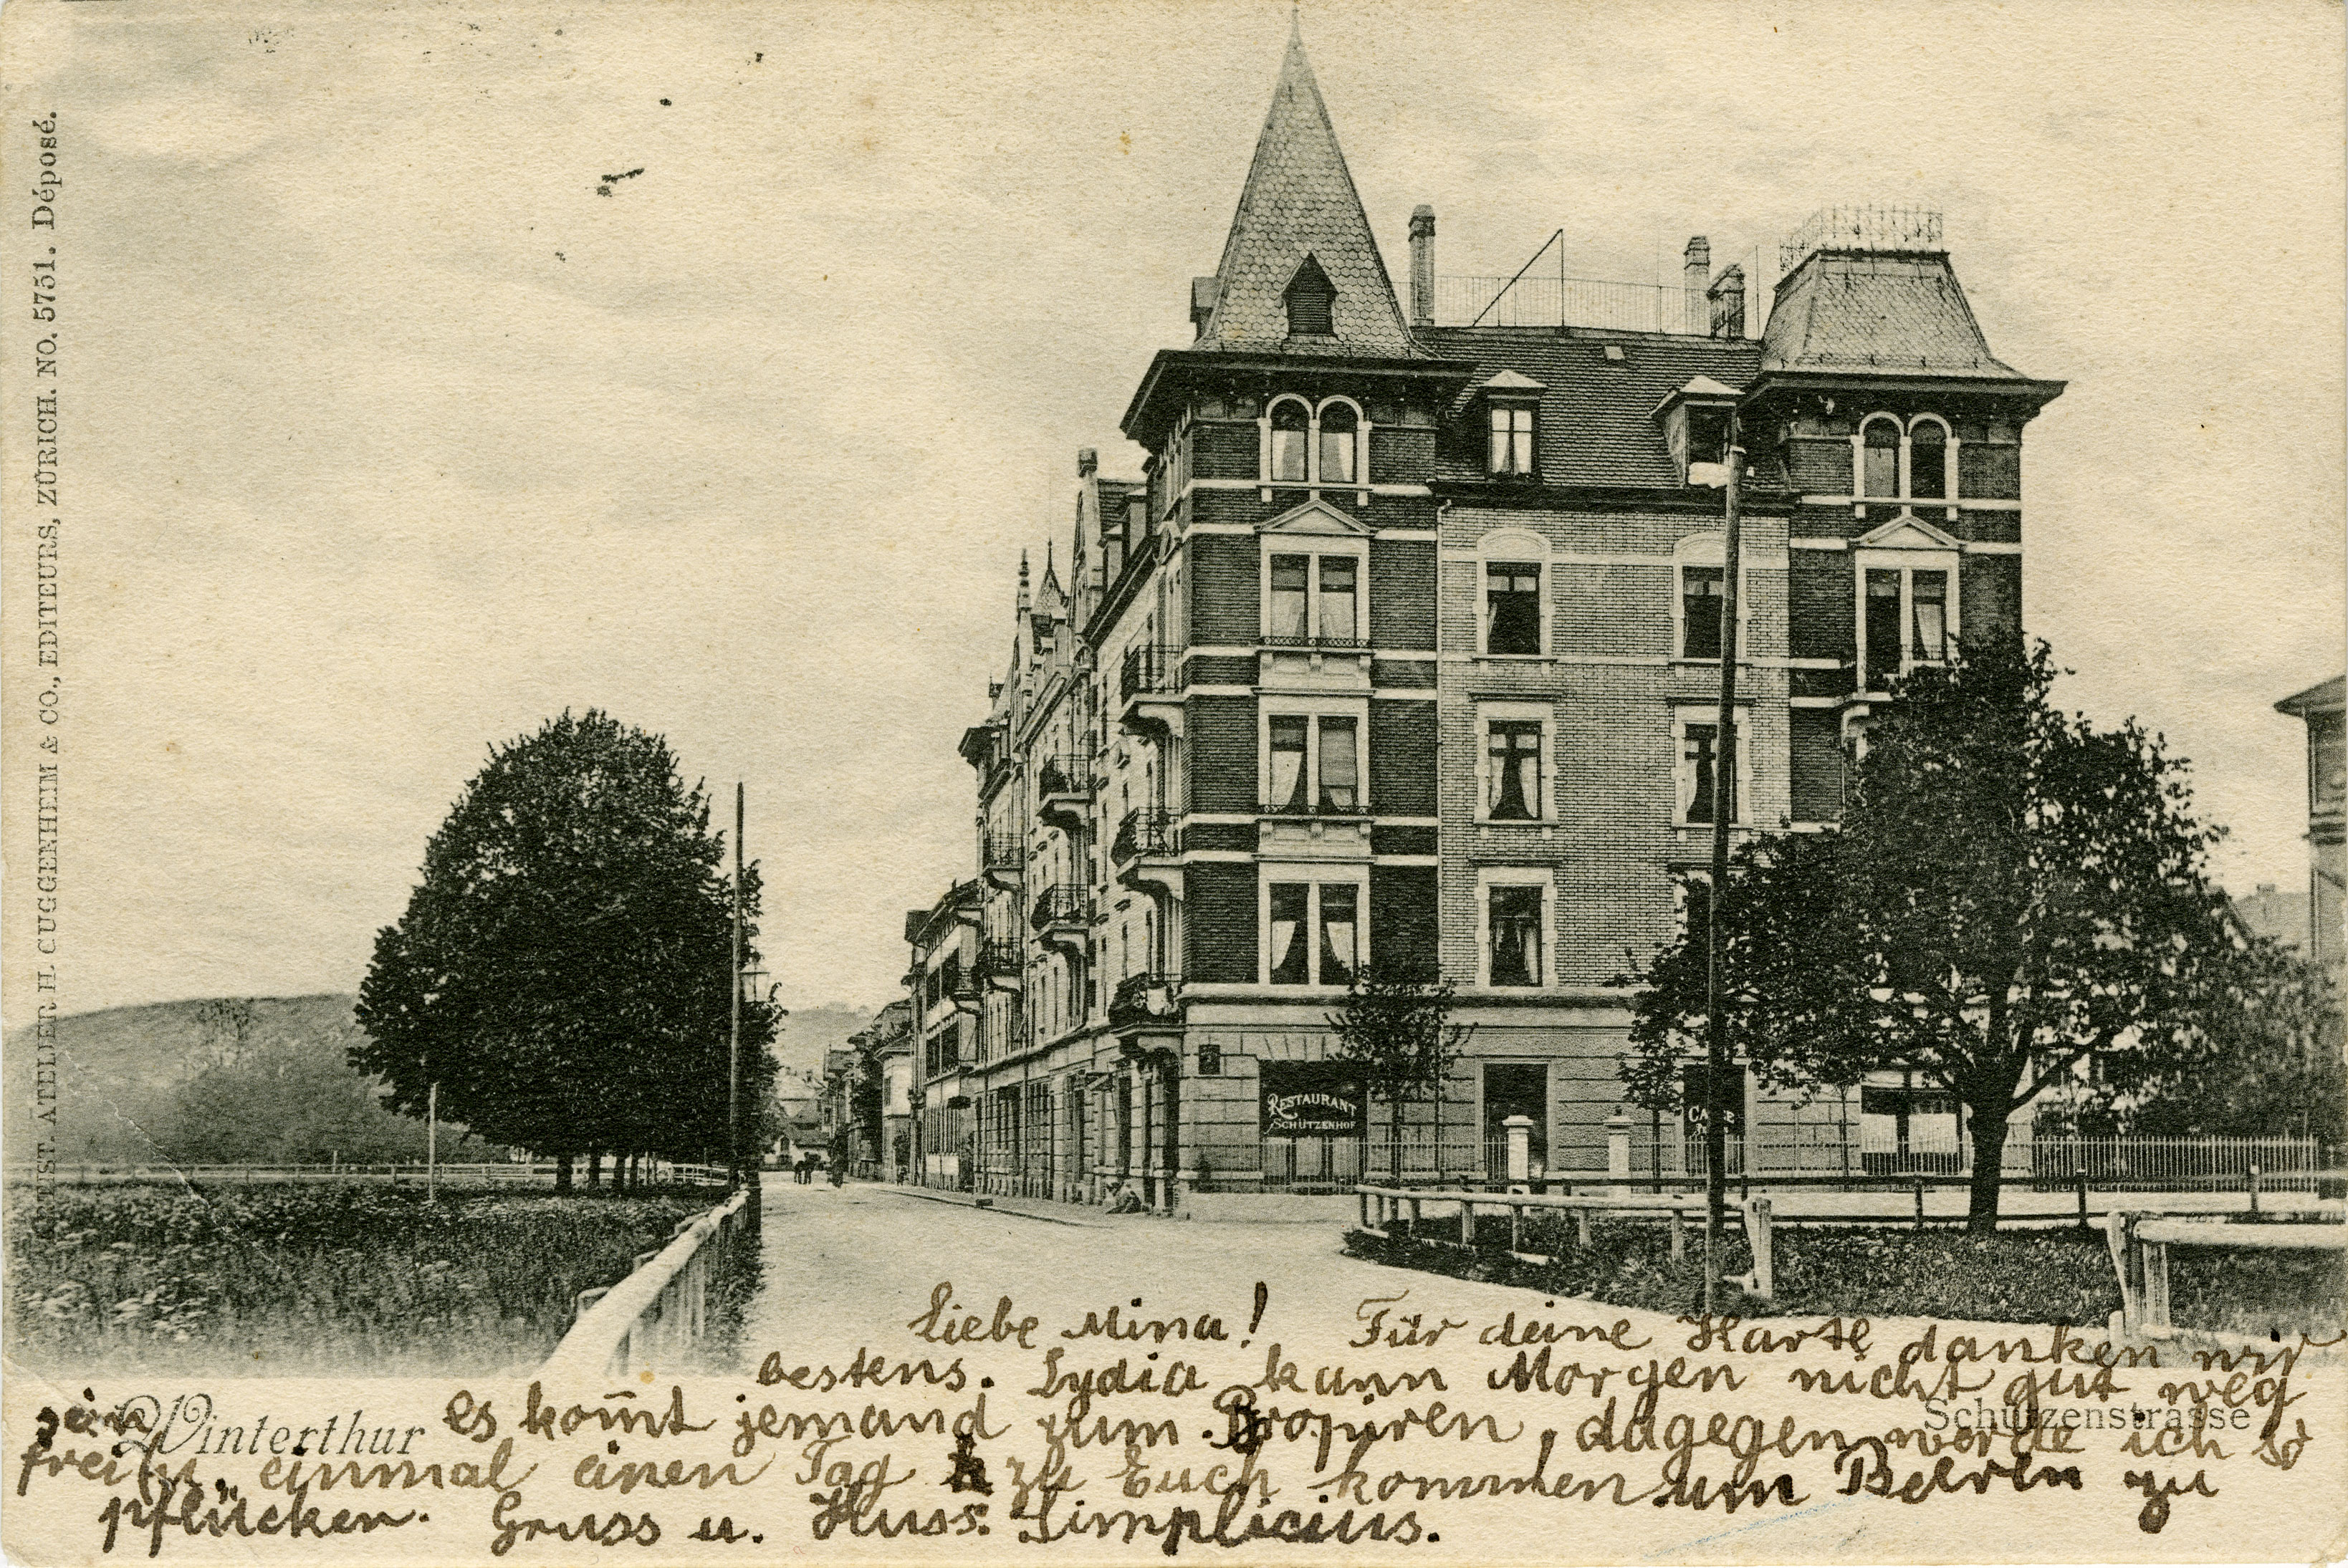 ARTIST. ATELIER H. GUGGENHEIM & CO., EDITEURS, ZÜRICH. NO. 5751. Déposé.
RESTAURANT
SCHÜTZENHOF
Liebe Mina! Für deine Karte danken wir
bestens. Lydia kann Morgen nicht gut weg
sein es kom̅t jemand zum Propiren, dagegen werde ich so
frei sein, einmal einen Tag zu Euch kommen um Beeren zu
pflücken. Gruss u. Kuss. Simplicius.
Winterthur
Schützenstrasse